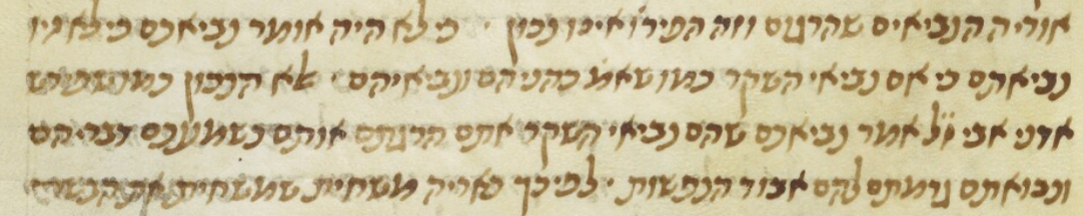 אוריה הנביאים שהרגום וזה הפירו' אינו נכון · כי לא היה אומר נביאכם כי לא היו
נביאכם כי אם נביאי השקר כמו שאמ' כהניהם ונביאיהם · אלא הנכון כמו שפירש
אדני אבי ז"ל אמר נביאכם שהם נביאי השקר אתם הרגתם אותם כשמעכם דבריהם
ונבואתם גרמתם להם אבוד הנפשות · לפיכך כאריה משחית שמשחית את הבשר